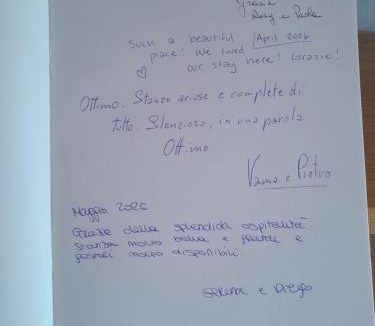 Grazie
Rosy e Paola
Such a beautiful
place! We loved April 2026
our stay here! Grazie!
Ottimo. Stanze ariose e complete di
tutto. Silenzioso, in una parola
Ottimo
Vania e Pietro
Maggio 2026
Grazie della splendida ospitalità
stanza molto bella e grande e
molto disponibili.
Serena e Diego